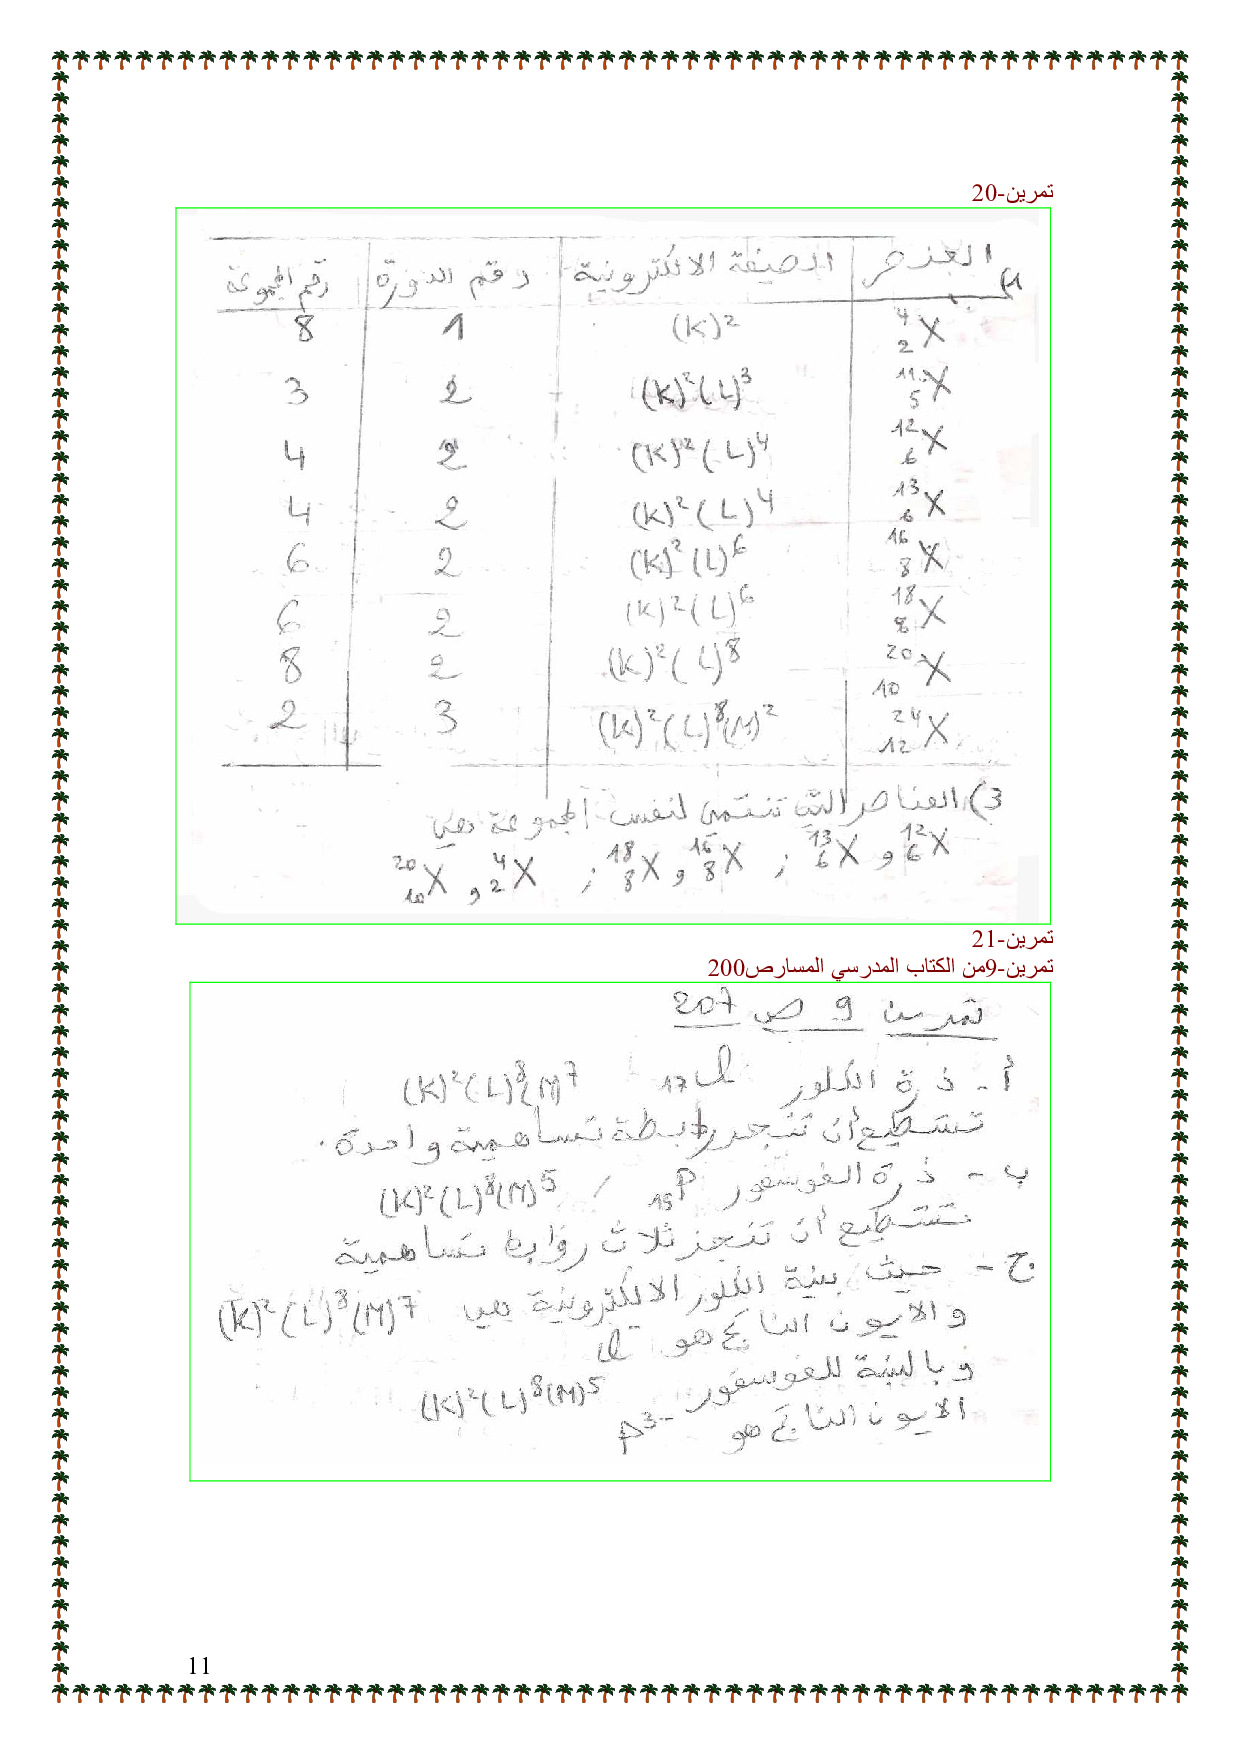 تمرين-20
1) العنصر | الصيغة الالكترونية | رقم الدورة | رقم المجموعة
⁴₂X | (K)² | 1 | 8
¹¹₅X | (K)²(L)³ | 2 | 3
¹²₆X | (K)²(L)⁴ | 2 | 4
¹³₆X | (K)²(L)⁴ | 2 | 4
¹⁶₈X | (K)²(L)⁶ | 2 | 6
¹⁸₈X | (K)²(L)⁶ | 2 | 6
²⁰₁₀X | (K)²(L)⁸ | 2 | 8
²⁴₁₂X | (K)²(L)⁸(M)² | 3 | 2
3) العناصر التي تنتمي لنفس المجموعة هي
¹²₆X و ¹³₆X ; ¹⁶₈X و ¹⁸₈X ; ⁴₂X و ²⁰₁₀X
تمرين-21
تمرين-9من الكتاب المدرسي المسارص200
تمرين 9 ص 207
أ - ذرة الكلور ₁₇Cl (K)²(L)⁸(M)⁷
تستطيع أن تنجز رابطة تساهمية واحدة.
ب - ذرة الفوسفور ₁₅P / (K)²(L)⁸(M)⁵
تستطيع أن تنجز ثلاث روابط تساهمية
ج - حيث بنية الكلور الاليكترونية هي (K)²(L)⁸(M)⁷
و الايون الناتج هو Cl⁻
و بالنسبة للفوسفور (K)²(L)⁸(M)⁵
الايون الناتج هو P³⁻
11